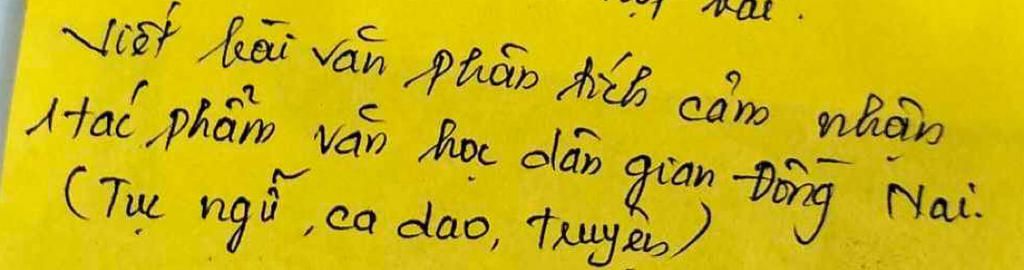 vài.
Viết bài văn phân tích cảm nhận
1 tác phẩm văn học dân gian Đồng Nai.
(Tục ngữ, ca dao, truyện)